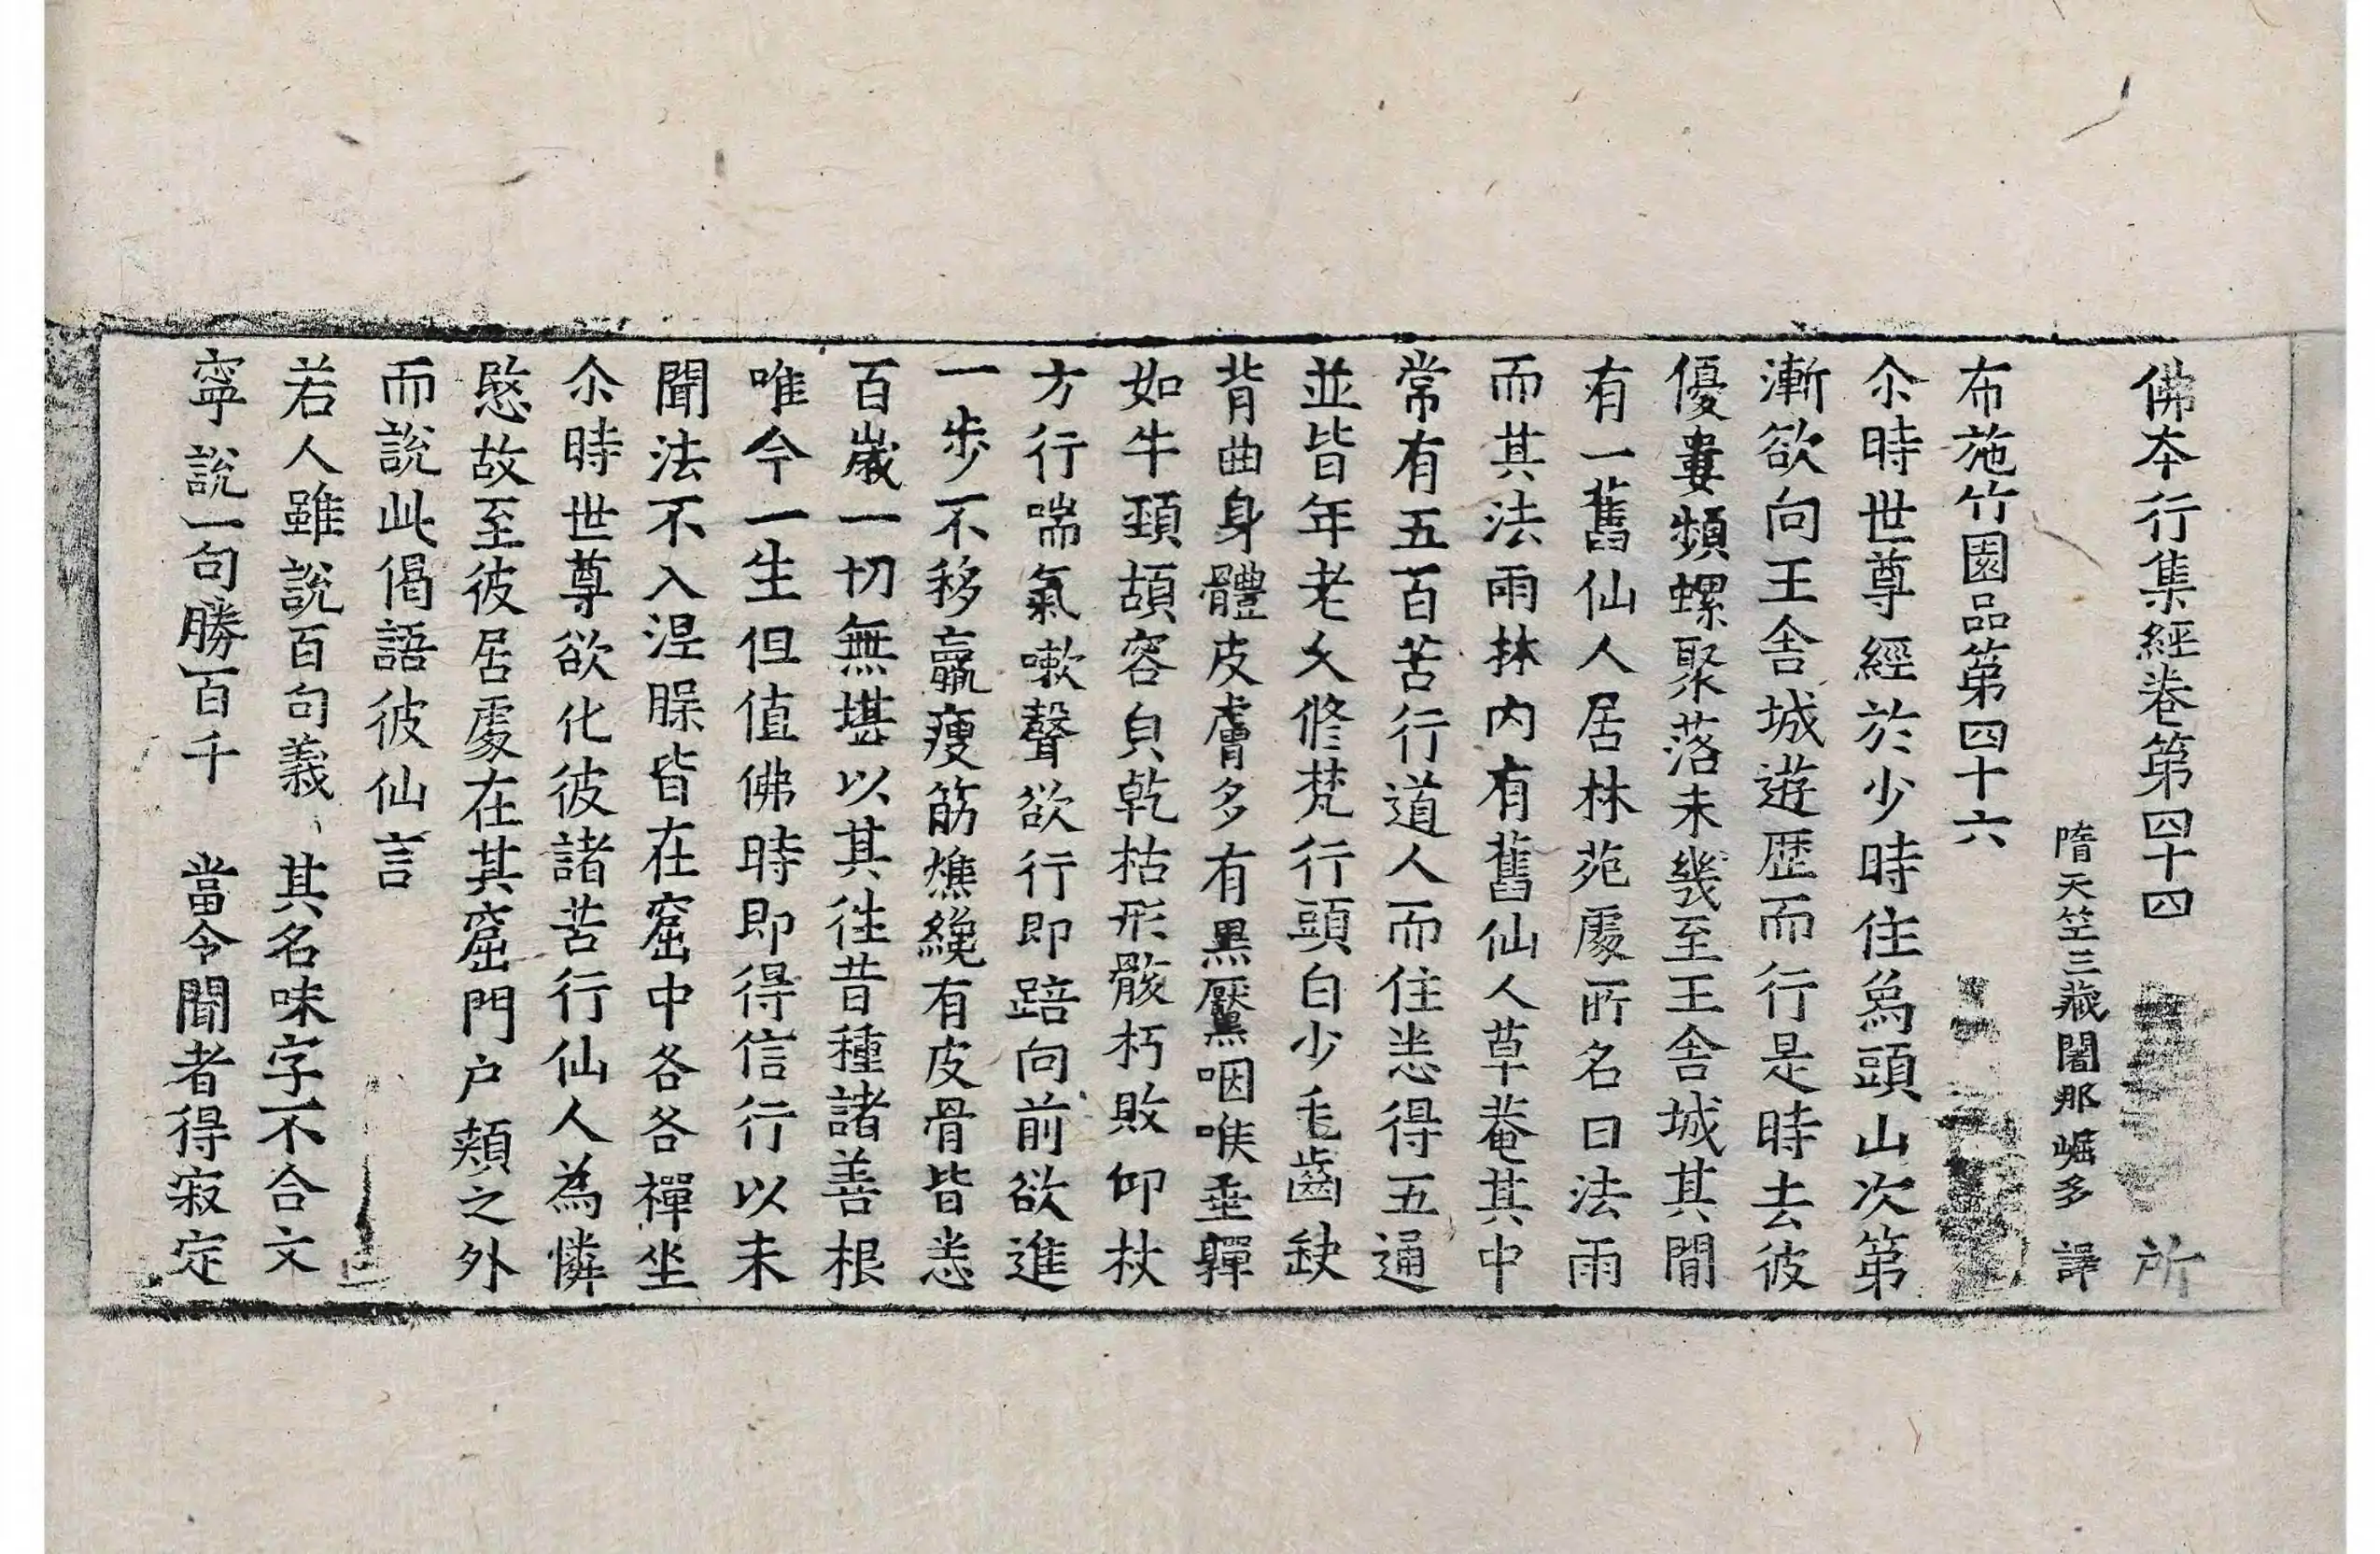 佛本行集經卷第四十四 所
隋天竺三藏闍那崛多 譯
布施竹園品第四十六
尒時世尊經於少時住爲頭山次第
漸欲向王舎城遊歴而行是時去彼
優婁頻螺聚落未幾至王舎城其間
有一舊仙人居林苑䖏所名曰法雨
而其法雨林内有舊仙人草菴其中
常有五百苦行道人而住悉得五通
並皆年老久修梵行頭白少毛齒缺
背曲身體皮膚多有黒黶咽喉垂嚲
如牛頸頡容皃乾枯形骸朽敗仰杖
方行喘氣嗽聲欲行即踣向前欲進
一步不移羸瘦筋燋纔有皮骨皆悉
百歳一切無堪以其往昔種諸善根
唯今一生但值佛時即得信行以未
聞法不入涅槃皆在窟中各各禪坐
尒時世尊欲化彼諸苦行仙人為憐
愍故至彼居䖏在其窟門户頰之外
而說此偈語彼仙言
若人雖說百句義 其名味字不合文
寧說一句勝百千 當令聞者得寂定